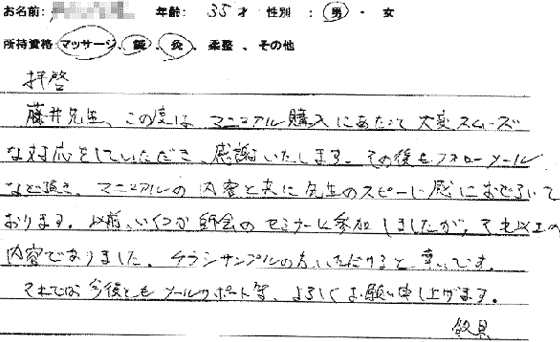 お名前: 年齢: 35才 性別 : 男 ・ 女
所持資格 マッサージ、鍼、灸、柔整、その他
拝啓
藤井先生、この度は マニュアル購入にあたって 大変スムーズ
な対応をしていただき、感謝いたします。その後もフォローメール
など頂き、マニュアルの内容と共に先生のスピード感におどろいて
おります。以前、いくつか 師会のセミナーに参加しましたが、それ以上の
内容でありました。チラシサンプルの方、いただけると 幸いです。
それでは 今後とも メールサポート等、よろしくお願い申し上げます。
敬具